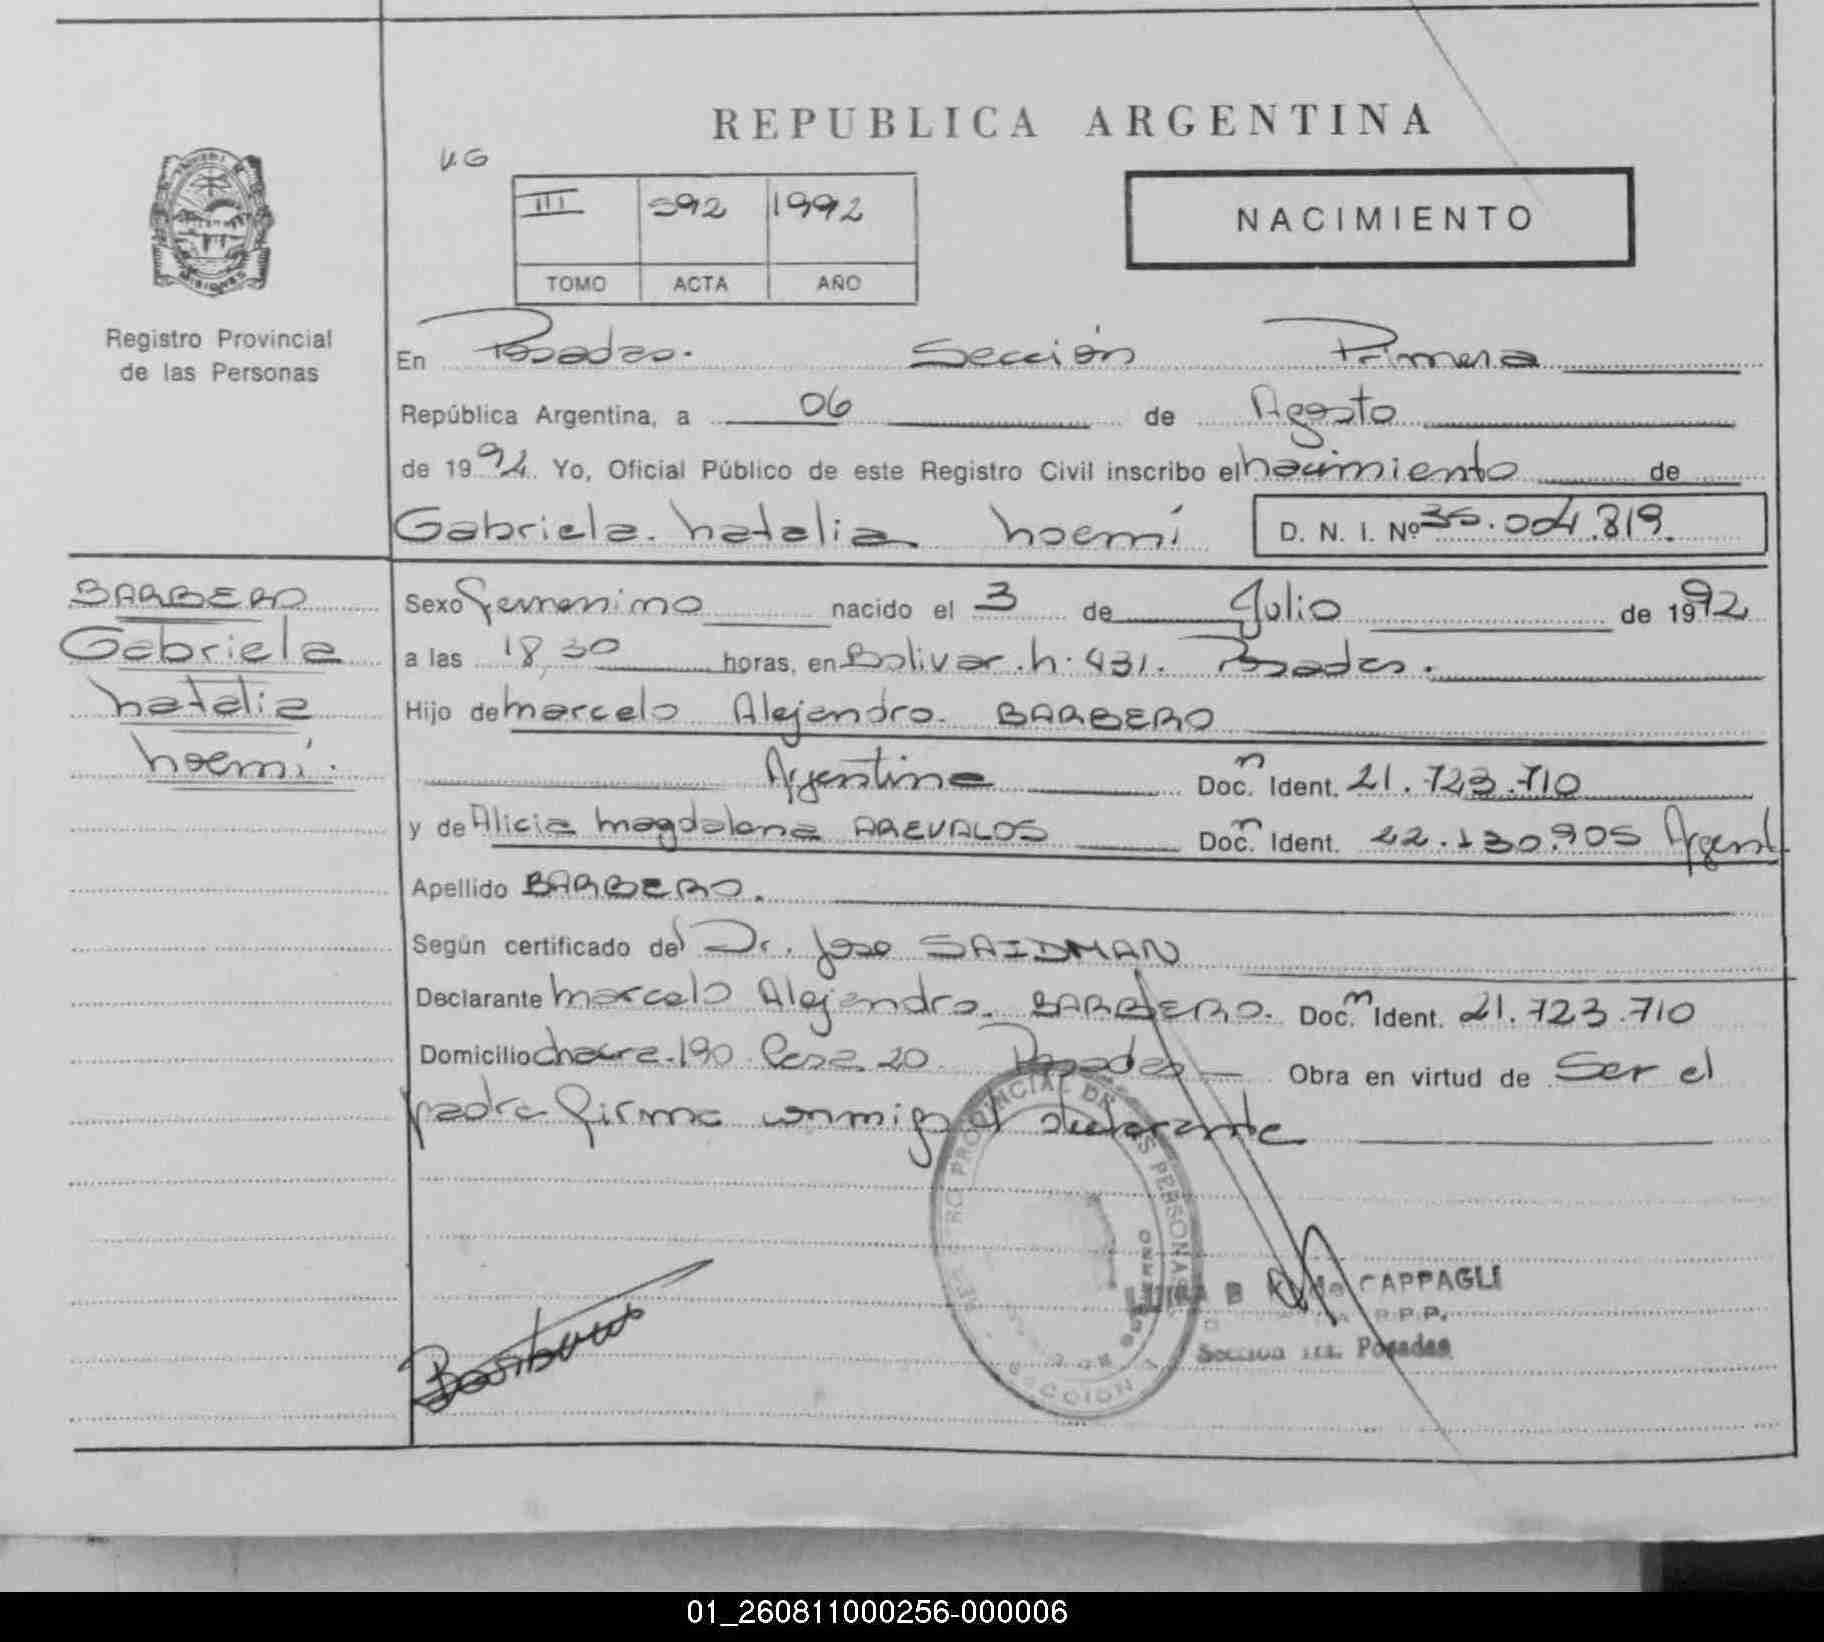 REPUBLICA ARGENTINA
III 392 1992
TOMO ACTA AÑO
NACIMIENTO
MISIONES
Registro Provincial
de las Personas
En Posadas. Sección Primera
República Argentina, a 06 de Agosto
de 1992. Yo, Oficial Público de este Registro Civil inscribo el nacimiento de
Gabriela. Natalia Noemí D. N. I. Nº 35.004.819.
BARBERO
Gabriela
Natalia
Noemí.
Sexo femenino nacido el 3 de Julio de 1992
a las 18,30 horas, en Bolivar. N. 431. Posadas.
Hijo de Marcelo Alejandro. BARBERO
Argentino Doc. n Ident. 21.723.710
y de Alicia Magdalena AREVALOS Doc. n Ident. 22.130.905 Argent
Apellido BARBERO.
Según certificado del Dr. Jose SAIDMAN
Declarante Marcelo Alejandro. BARBERO. Doc. m Ident. 21.723.710
Domicilio chacra. 190. Casa. 20. Posadas Obra en virtud de Ser el
padre firma conmigo el declarante
PROVINCIAL DE LAS PERSONAS
SECCION
de CAPPAGLI
R.P.P.
Seccion 1ra. Posadas
01_260811000256-000006